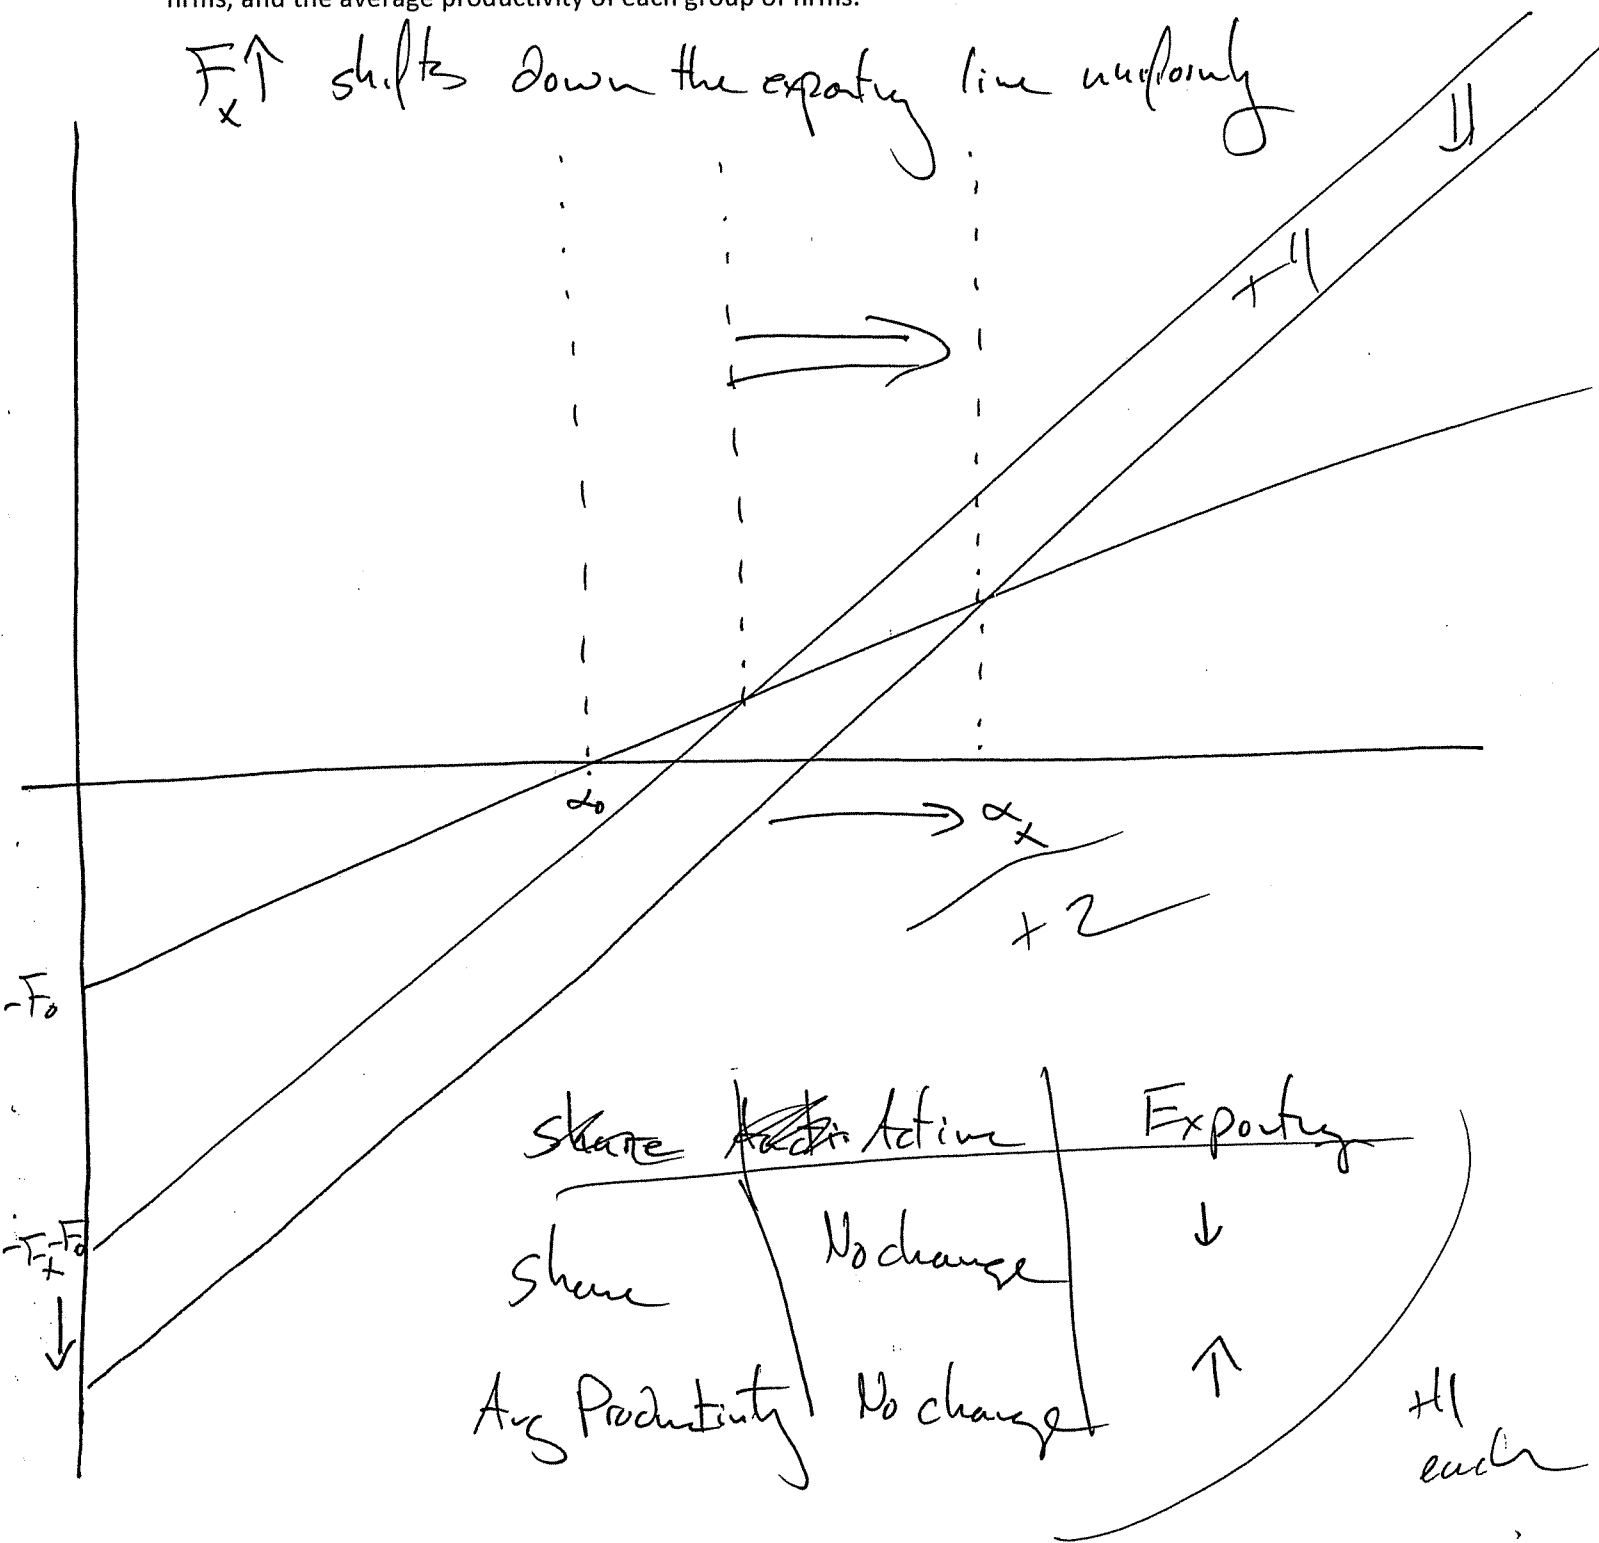 firms, and the average productivity of each group of firms.
Fx↑ shifts down the exporting line uniformly
+4
α₀
→ αx
+2
-F₀
-Fx-F₀
↓
share Active Exporting
Share No change ↓
Avg Productivity No change ↑
+1
each